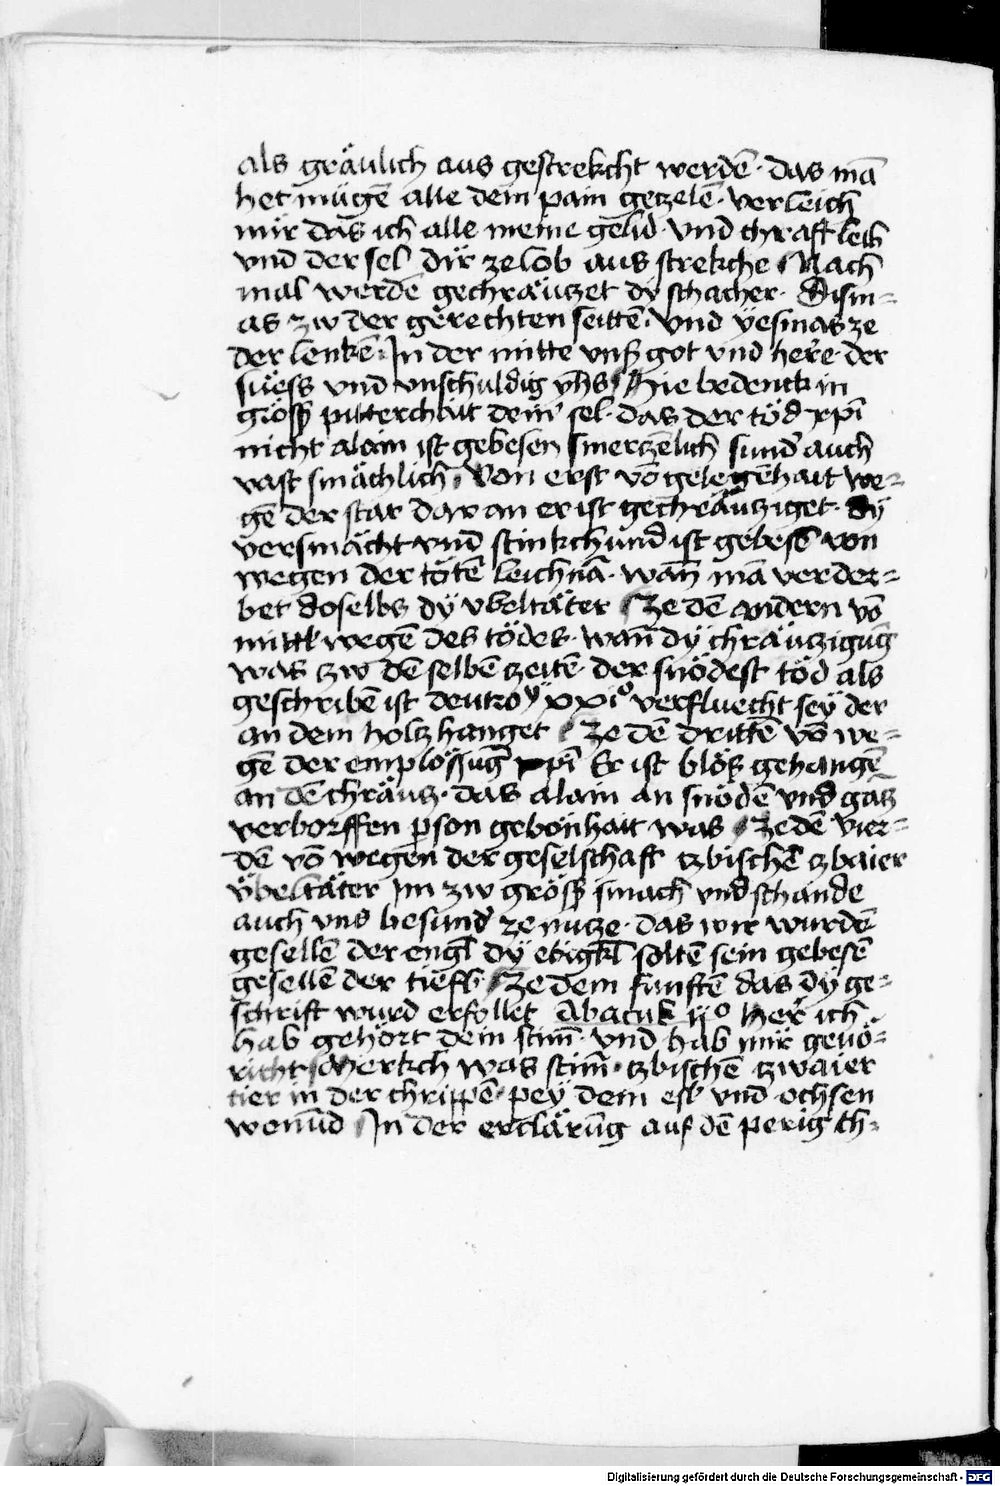 als gräulich aus gestrekcht werdē · das mā
het mügē alle dem pain getzelē · verleich
mir das ich alle meine gelid · vnd chrafft leib
vnd der sel dir ze lob aus strekche Nach
mal werdē gechräutzet dy schacher · Dism=
as zw der gerechten seittē · vnd yesmas ze
der lenkē · In der mitte vnß got vnd herre · der
suess vnd vnschuldig yhs Hie bedenck in
grösß pitterchait deinr sel · das der töd xpī
nicht alain ist gebesen smerczlich sundr auch
vast smächlich Von erst vō gelegēhait we=
gē der stat dar an er ist gechräutziget · dy
versmächt vnd stinkchund ist gebesē von
wegen der tötē leichnā · wan̄ mā verder=
bet doselbs dy vbeltäter Ze dē andern vō
mittl wegē des tödes · wan̄ dy chräutzigūg
was zw dē selbē zeitē · der snödest töd als
geschribē ist deutroy xxio verfluecht sey der
an dem holtz hanget Ze dē drittē vō we=
gē der emplössūg xpī Er ist blöß gehangē
an dē chräutz · das alain an snödē vnd gātz
verborffen pson gebonhait was Ze dē vier=
dē vō wegen der geselschaft tzbischē tzbaier
übeltäter Im zw grösß smach vnd schande
auch vns besundr ze nutze · das wir wurdē
gesellē der engl dy ebigkl soltē sein gebesē
gesellē der tieffl · Ze dem funftē das dy ge=
schrift wurd erfollet Abacuk ijo Herr ich
hab gehört dein stim̄ · vnd hab mir gevö=
richt Merkch was stim̄ · tzbischē tzwaier
tier in der chrippē · pey dem esl vnd ochsen
wonūd In der erclärūg auf dē perig th=
Digitalisierung gefördert durch die Deutsche Forschungsgemeinschaft - DFG